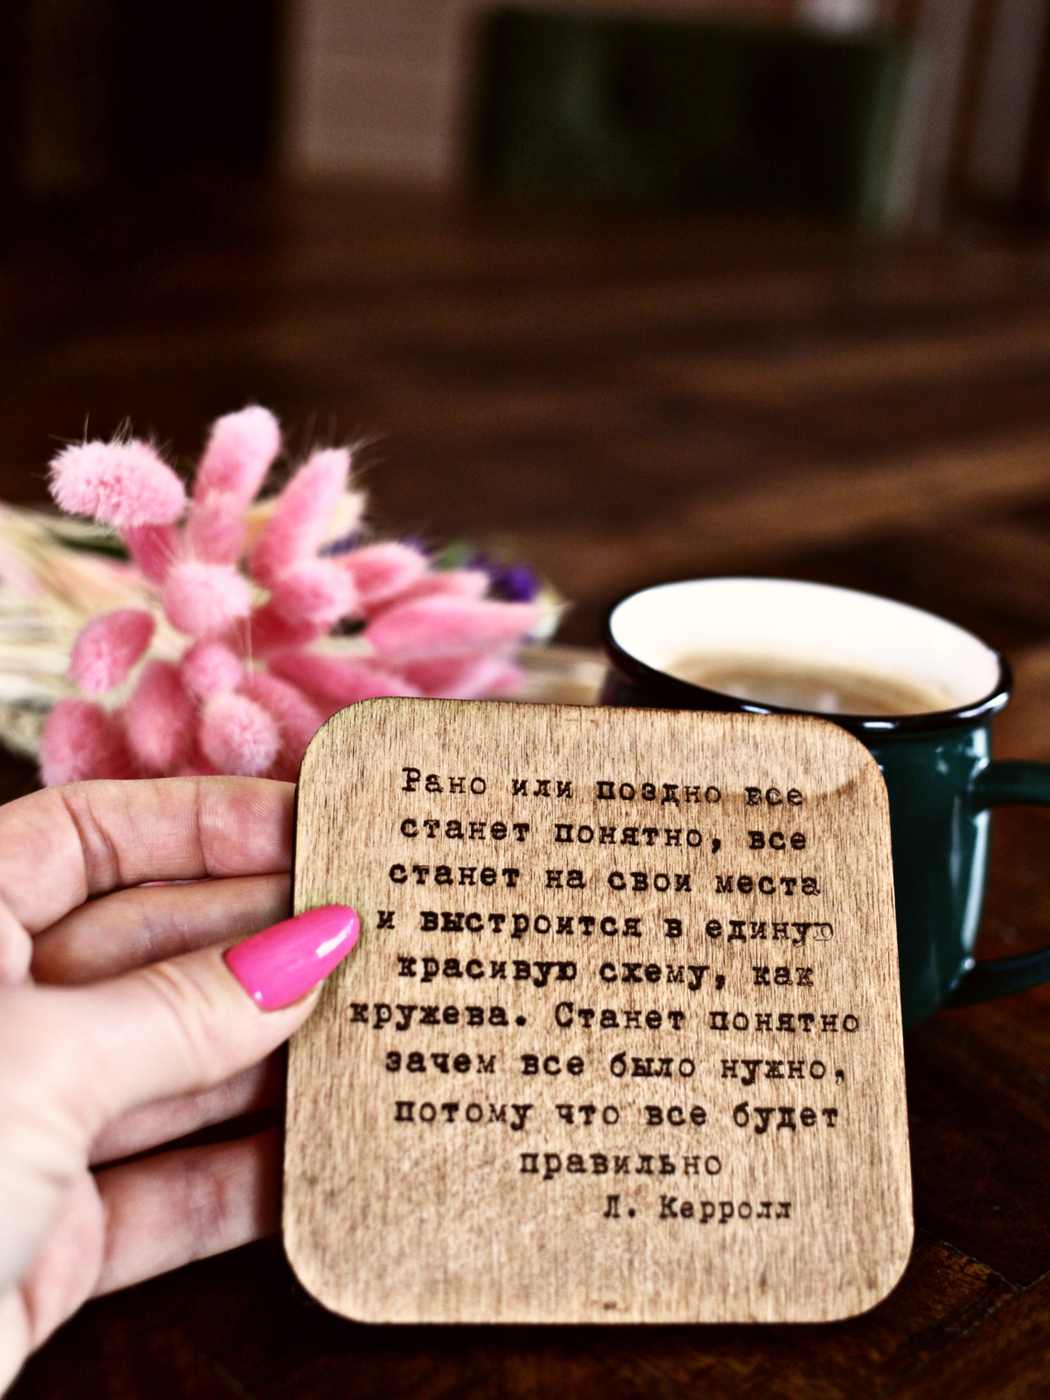 Рано или поздно все
станет понятно, все
станет на свои места
и выстроится в единую
красивую схему, как
кружева. Станет понятно
зачем все было нужно,
потому что все будет
правильно
Л. Кэрролл